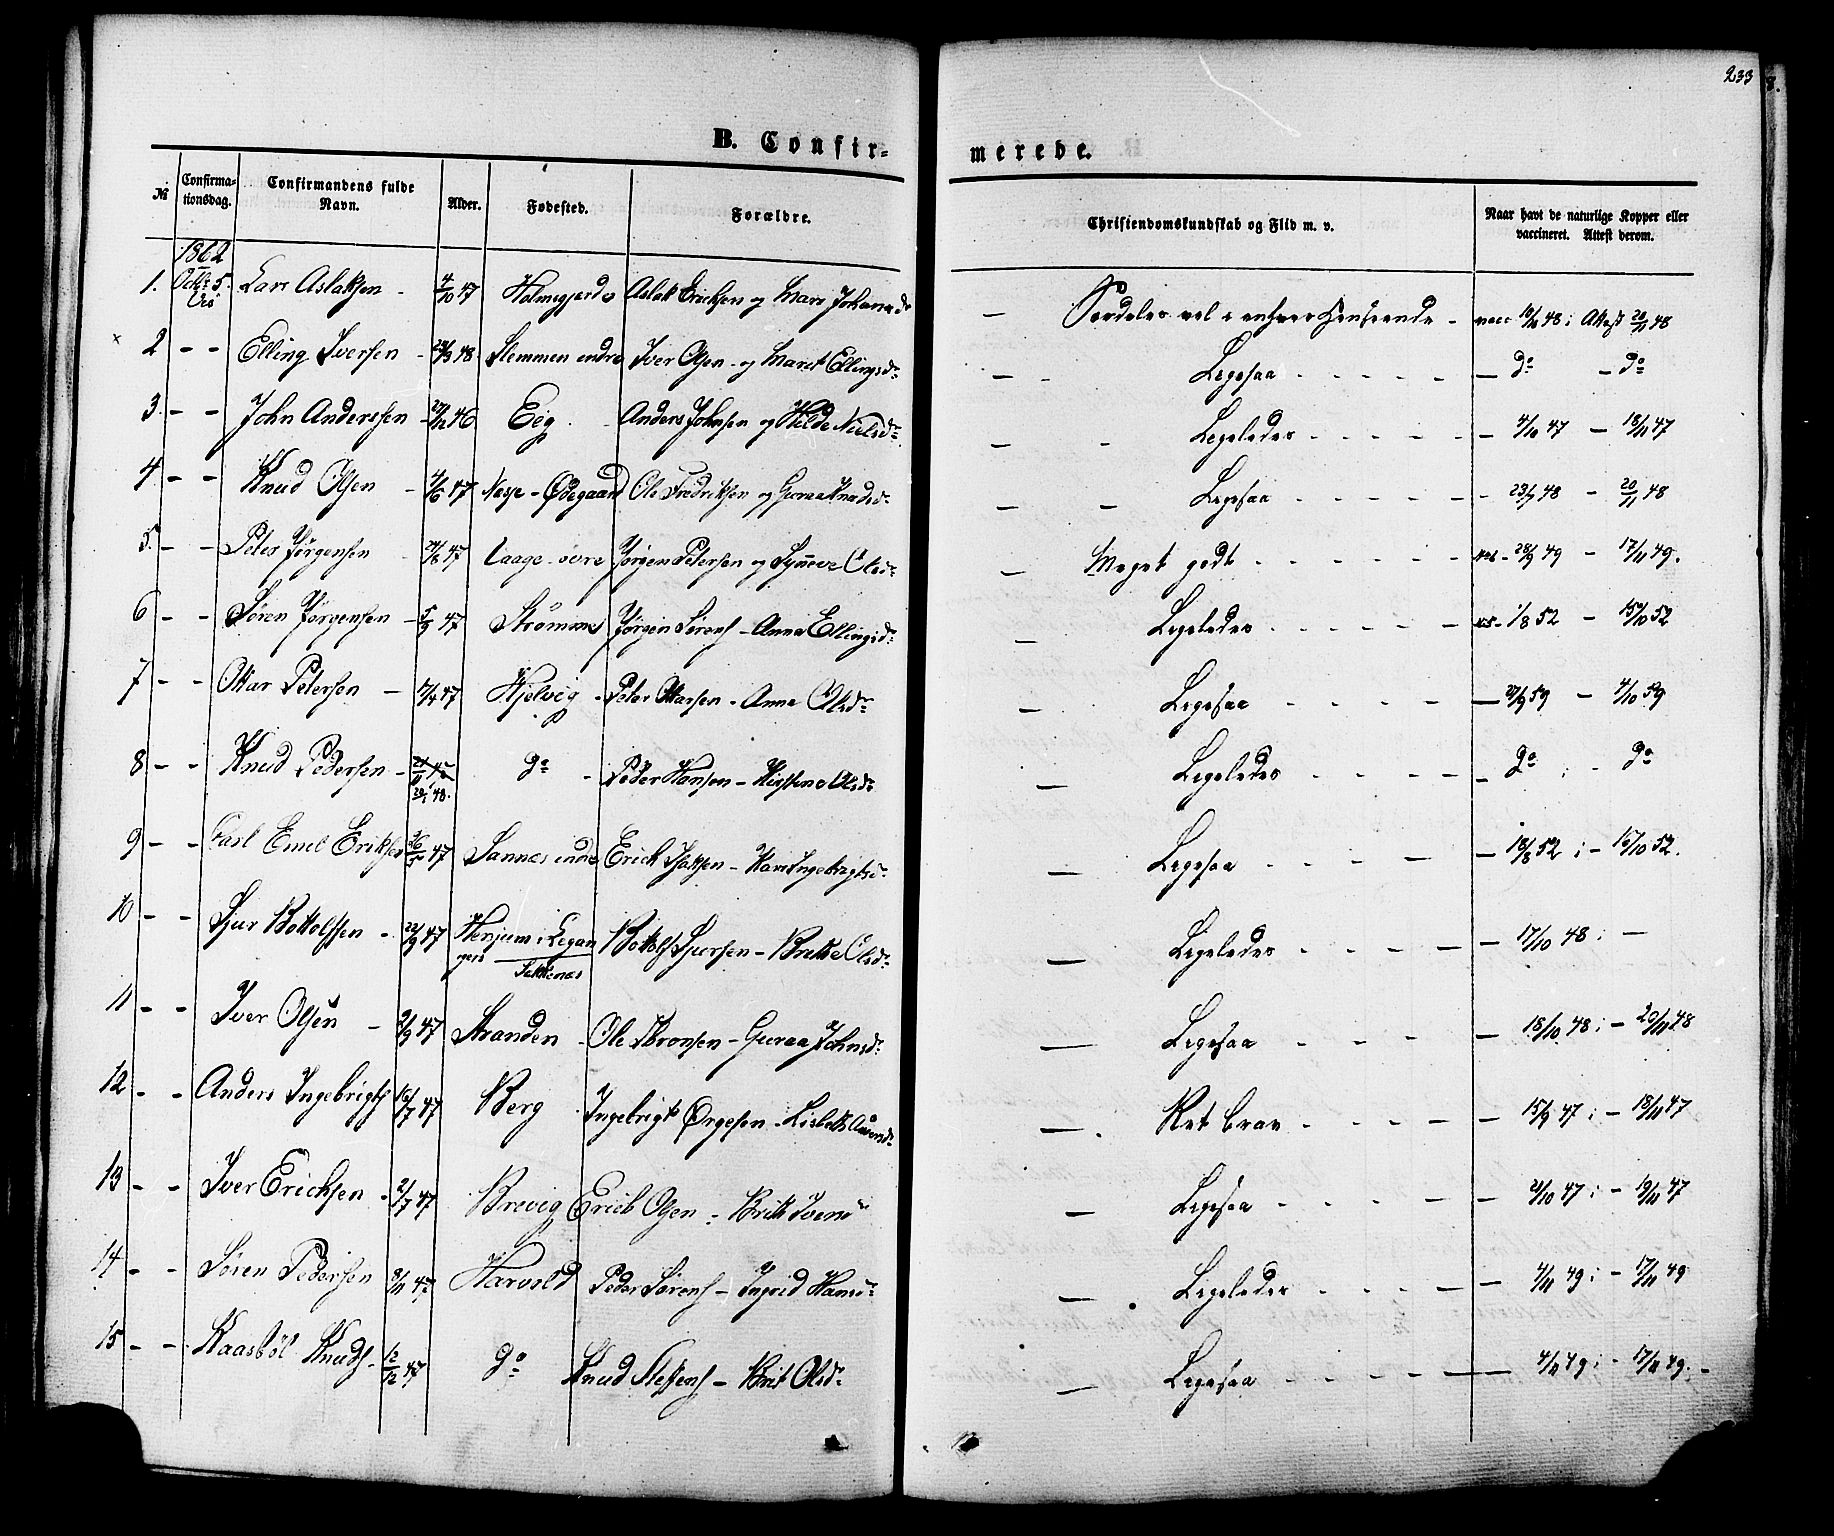 233
B. Confir-
merede.
№ Confirma-tionsdag. Confirmandens fulde Navn. Alder. Fødested. Forældre. Christendomskundskab og Flid m. v. Naar havt de naturlige Kopper eller vaccineret. Attest derom.
1862
1. Octbr 5. Lars Aslaksen - 4/10 47 Aslak Ericksen og - Særdeles vel i enhver Henseende - vacc 48; Attest 20/11 48
2 - - Elling Iversen - 48 Slemmen indre Iver Olsen - og Marit Ellingsdr - - Ligesaa - - - - - do - do
3. - - John Anderssen - 46 Eeg Anders Johnsen og Hilde Nielsdr - - Ligeledes - - - - - 4/10 47 - 18/11 47
4 - - Knud Olsen - 4/6 47 Næsje-Ødegaard Ole Fredriksen og Guraa Knudsdr - - Ligesaa - - - - - 48 - 20/11 48
5. - - Peter Jørgensen - 47 Laage øvre Jørgen Petersen og Synneve Olsdr - Meget godt - - - - - 28/9 49 - 17/11 49.
6 - - Søren Jørgensen - 5/9 47 Strømmes Jørgen Sørens - Anna Ellingsdr - Ligeledes - - - - - 1/8 52 - 15/10 52
7 - - Ottar Petersen - 47 Hjelvig - Peter Ottarsen - Anne Olsdr - Ligesaa - - - - - 27/9 59 - 4/10 59
8 - - Knud Pedersen - 48. do - Peder Hansen - Kirstine Olsdr - Ligeledes - - - - do - do
9 - - Carl Emil Eriksen 26/5 47 Sannes indre Erick - Kari Ingebrigtsd - Ligesaa - - - - 18/8 52; - 15/10 52.
10 - - Sjur Bottolfsen - 22/9 47 Henjum i Leganger Bottolf Sjursen - Britte Olsdr - Ligeledes - - - - 17/10 48; -
11 - - Iver Olsen - 2/9 47 Stranden - Ole Thronsen - Guraa Johnsdr - Ligesaa - - - - 18/10 48; - 20/11 48
12 - - Anders Ingebrigts 16/7 47 Berg Ingebrigt Ørgesen - Lisbeth - Ret brav - - - - 15/9 47; - 18/11 47
13 - - Iver Ericksen - 2/7 47 Brevig Erick Olsen - Brit Iversd - Ligesaa - - - - 21/10 47; - 19/11 47
14 - - Søren Pedersen 8/11 47 Harvold Peder Sørens - Ingrid Hansdr - Ligeledes - - - - 4/11 49; - 17/11 49
15 - - Kaasbøl Knuds - 12/12 47 do Knud Steffens - Brit Olsdr - Ligesaa - - - - 4/11 49; - 17/11 49. -